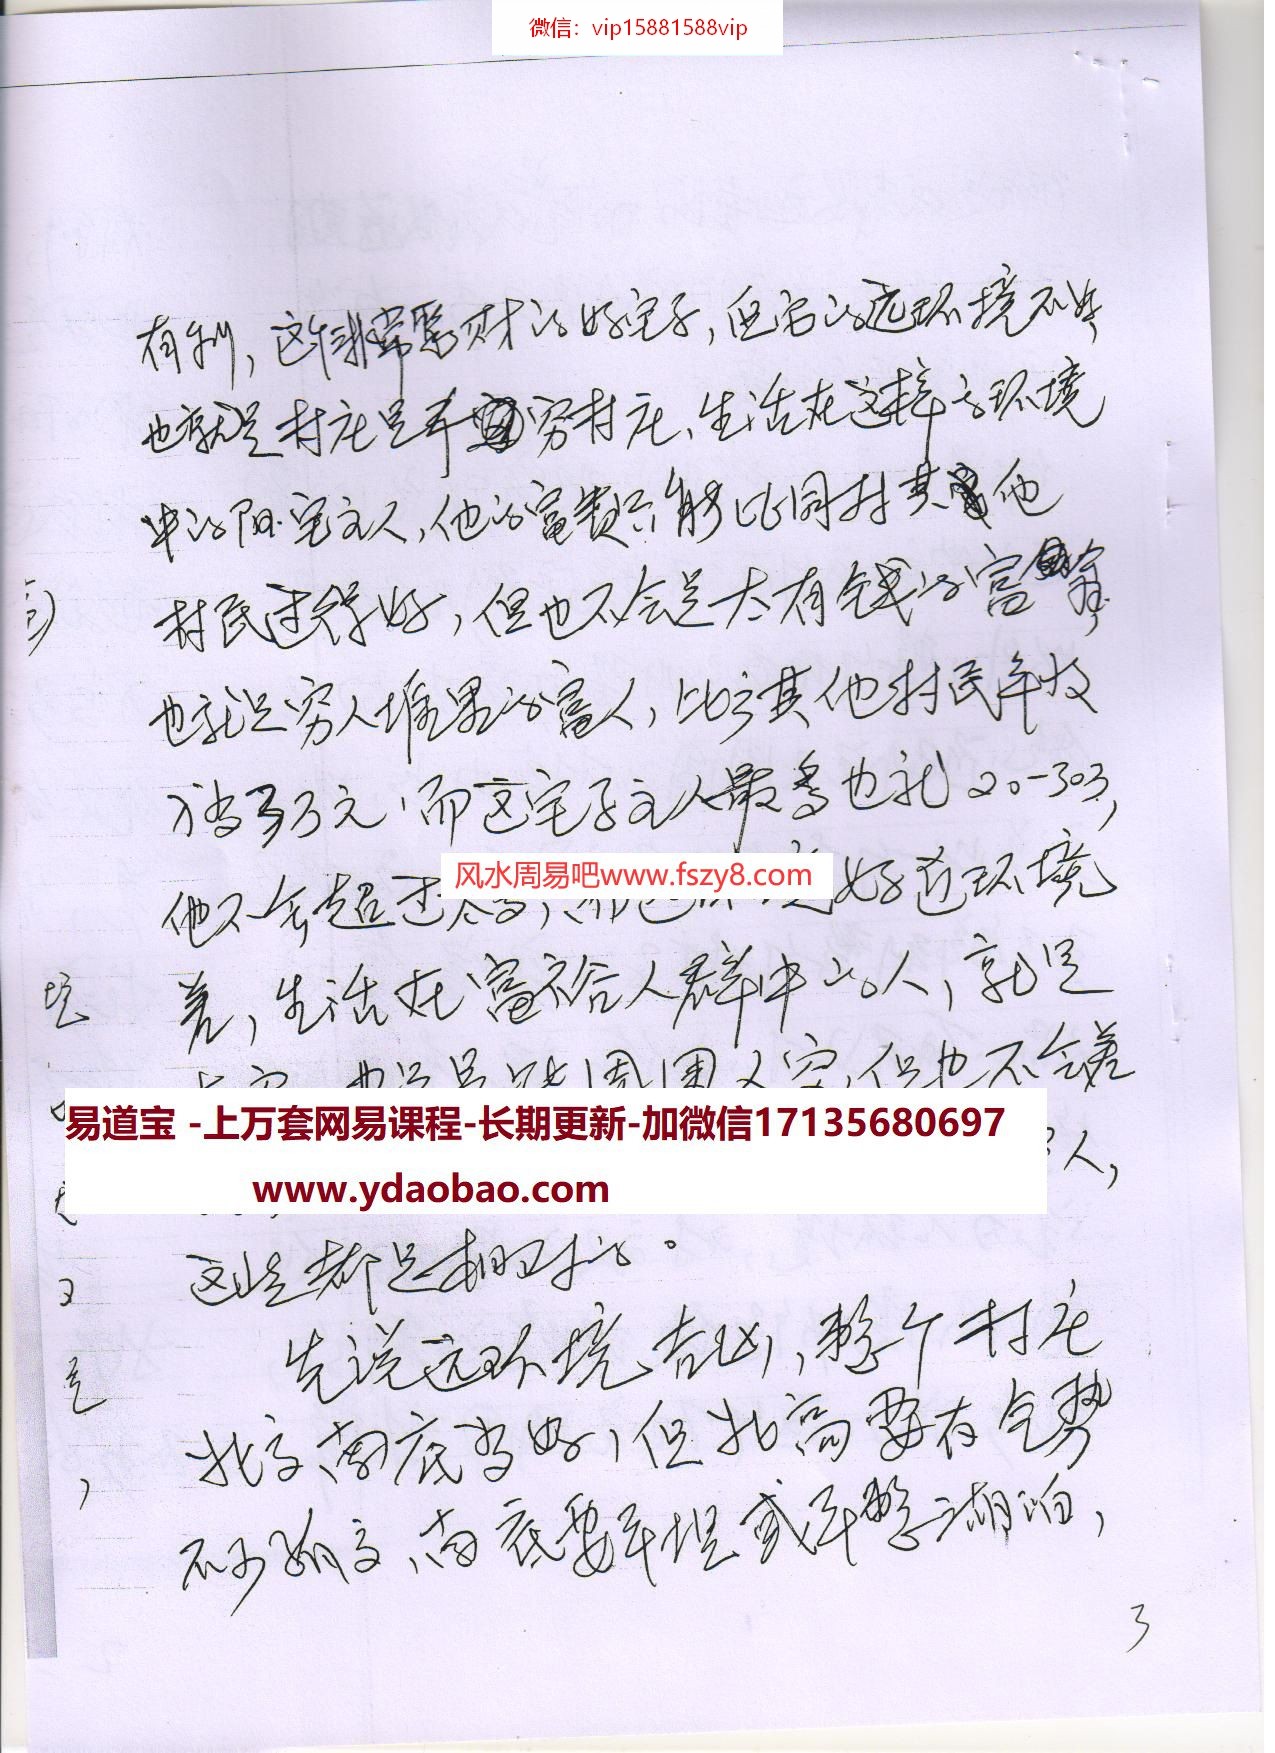 微信：vip15881588vip
有利，这个非常聚财的好宅子，但它的远环境不好
也就是村庄是个穷村庄、生活在这样的环境
中的阳宅主人，他的富贵只能比同村其他
村民过得好，但也不会是太有钱的富翁
也就是穷人堆里的富人，比方其他村民年收
3万元，而这宅子主人最多也就20-30万，
他不会超过太多，好近环境
风水周易吧www.fszy8.com
差，生活在富裕人群中的人，就是
周围人穷，但也不会差
易道宝 -上万套网易课程-长期更新-加微信17135680697
www.ydaobao.com
人，
这些都是相对的。
先说远环境吉凶，整个村庄
北高南底为好，但北高要有气势
南底要平坦或平整湖泊，
3